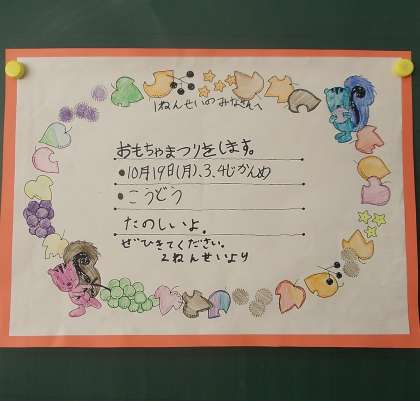 1ねんせいのみなさんへ
おもちゃまつりをします。
●10月19日(月)、3、4じかんめ
●こうどう
たのしいよ。
ぜひきてください。
2ねんせいより